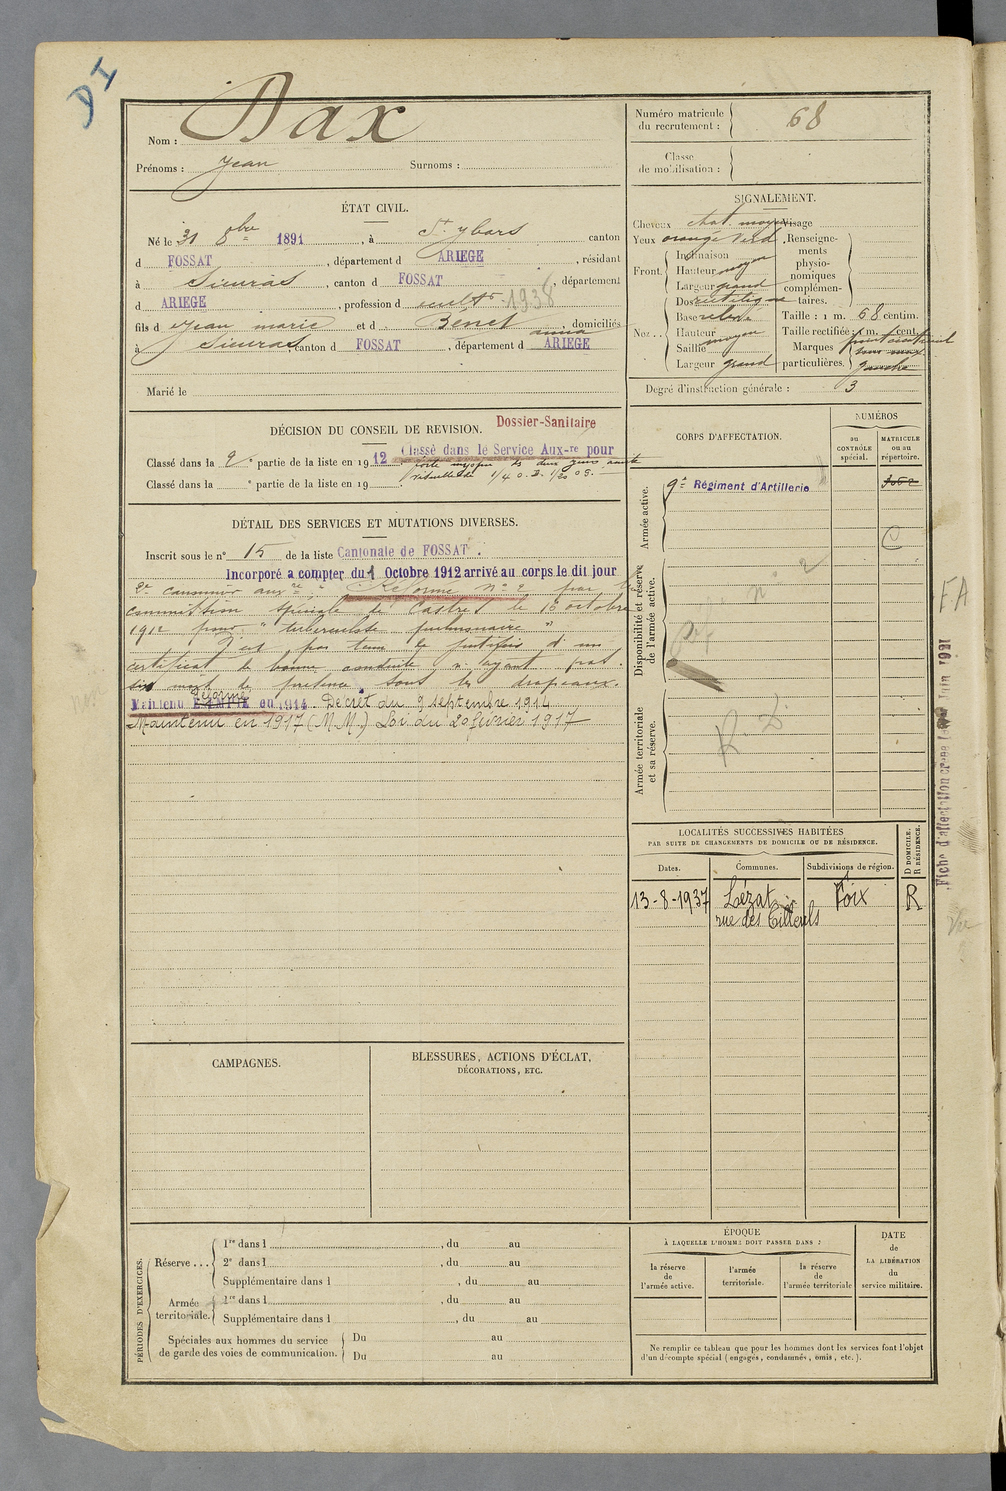 DI
Nom : Dax
Prénoms : Jean Surnoms :
ÉTAT CIVIL.
Né le 31 8bre 1891, à St Ybars canton
d FOSSAT, département d ARIEGE, résidant
à Sieuras, canton d FOSSAT, département
d ARIEGE, profession d cultr 1938
fils d Jean marie et d Bénet anna, domiciliés
à Sieuras, canton d FOSSAT, département d ARIEGE
Marié le
DÉCISION DU CONSEIL DE REVISION. Dossier-Sanitaire
Classé dans le Service Aux-re pour
Classé dans la 2e partie de la liste en 1912
forte myopie des deux yeux acuité
visuelle 1/4 O.D. 1/20 O.G.
Classé dans la e partie de la liste en 19
DÉTAIL DES SERVICES ET MUTATIONS DIVERSES.
Inscrit sous le n° 15 de la liste Cantonale de FOSSAT.
Incorporé à compter du 1 Octobre 1912 arrivé au corps le dit jour
2e canonnier auxre. Réformé n° 2 par la
commission spéciale de Castres le 16 octobre
1912 pour "tuberculose pulmonaire"
N'est pas tenu de justifier d'un
certificat de bonne conduite n'ayant pas
six mois de présence sous les drapeaux.
Maintenu EXEMPTÉ réformé en 1914. Décret du 9 septembre 1914
Maintenu en 1917 (M.M.) Loi du 20 février 1917
CAMPAGNES.
BLESSURES, ACTIONS D'ÉCLAT,
DÉCORATIONS, ETC.
PÉRIODES D'EXERCICES.
Réserve ...
1re dans l , du au
2e dans l , du au
Supplémentaire dans l , du au
Armée territoriale.
1re dans l , du au
Supplémentaire dans l , du au
Spéciales aux hommes du service
de garde des voies de communication.
Du au
Du au
Numéro matricule
du recrutement : 68
Classe
de mobilisation :
SIGNALEMENT.
Cheveux chat. moyen Visage
Yeux orangé verd.
Front.
Inclinaison
Hauteur moyen
Largeur grand
Nez ..
Dos rectiligne
Base relevé
Hauteur
Saillie moyen
Largeur grand
Renseignements
physionomiques
complémentaires.
Taille : 1 m. 68 centim.
Taille rectifiée : 1 m. cent.
Marques
particulières.
gauche
Degré d'instruction générale : 3
CORPS D'AFFECTATION.
NUMÉROS
au
CONTRÔLE
spécial.
MATRICULE
ou au
répertoire.
Armée active.
9e Régiment d'Artillerie
C
Disponibilité et réserve
de l'armée active.
n° 2
Armée territoriale
et sa réserve.
R. D.
LOCALITÉS SUCCESSIVES HABITÉES
PAR SUITE DE CHANGEMENTS DE DOMICILE OU DE RÉSIDENCE.
Dates. Communes. Subdivisions de région. D DOMICILE. R RÉSIDENCE.
13-8-1937 Lézat Foix R
rue des Tilleuls
ÉPOQUE
À LAQUELLE L'HOMME DOIT PASSER DANS :
la réserve
de
l'armée active.
l'armée
territoriale.
la réserve
de
l'armée territoriale
DATE
de
LA LIBÉRATION
du
service militaire.
Ne remplir ce tableau que pour les hommes dont les services font l'objet
d'un décompte spécial (engagés, condamnés, omis, etc.).
FA
Fiche d'affectation créée le Juin 1921